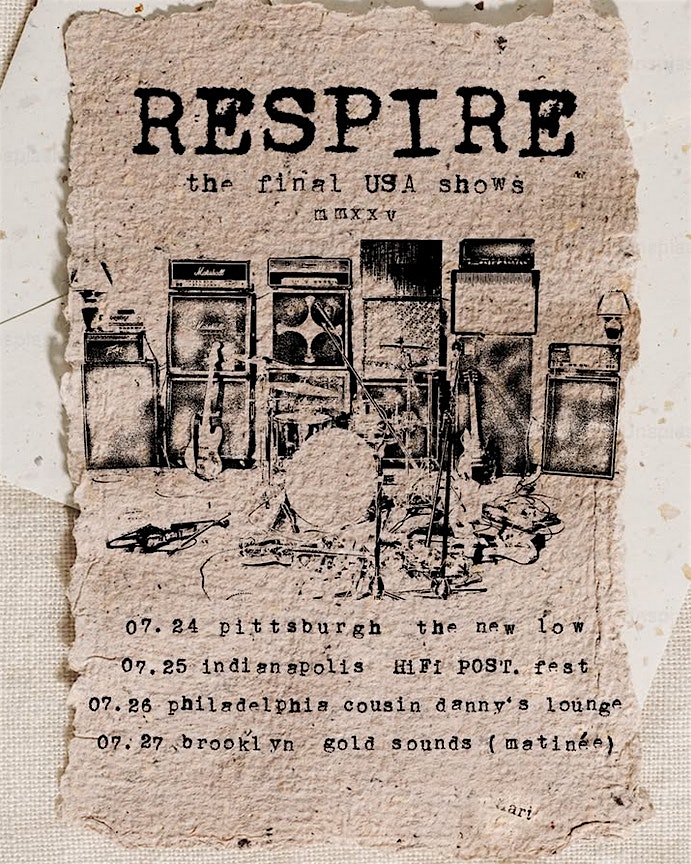 RESPIRE
the final USA shows
mmxxv
Marshall
07.24 pittsburgh the new low
07.25 indianapolis HiFI POST. fest
07.26 philadelphia cousin danny's lounge
07.27 brooklyn gold sounds (matinée)